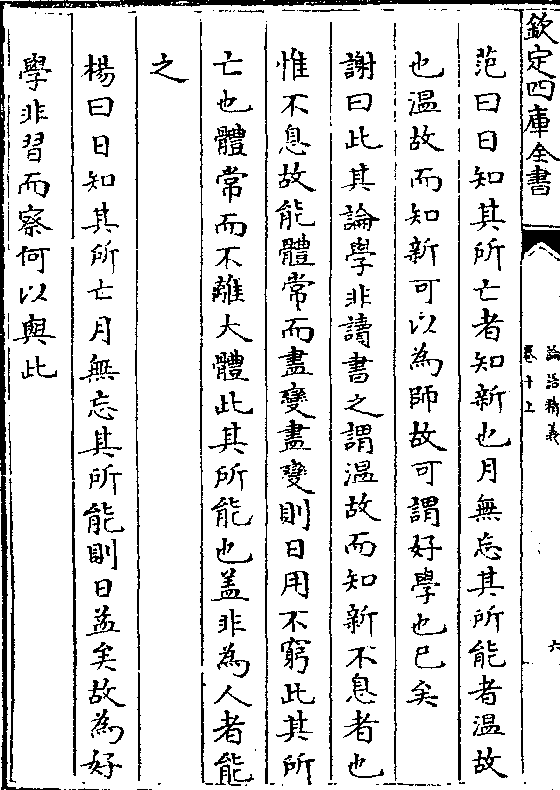 欽定四庫全書
論語精義
卷十上
六
范曰日知其所亡者知新也月無忘其所能者溫故
也溫故而知新可以為師故可謂好學也已矣
謝曰此其論學非讀書之謂溫故而知新不息者也
惟不息故能體常而盡變盡變則日用不窮此其所
亡也體常而不離大體此其所能也盖非為人者能
之
楊曰日知其所亡月無忘其所能則日益矣故為好
學非習而察何以與此